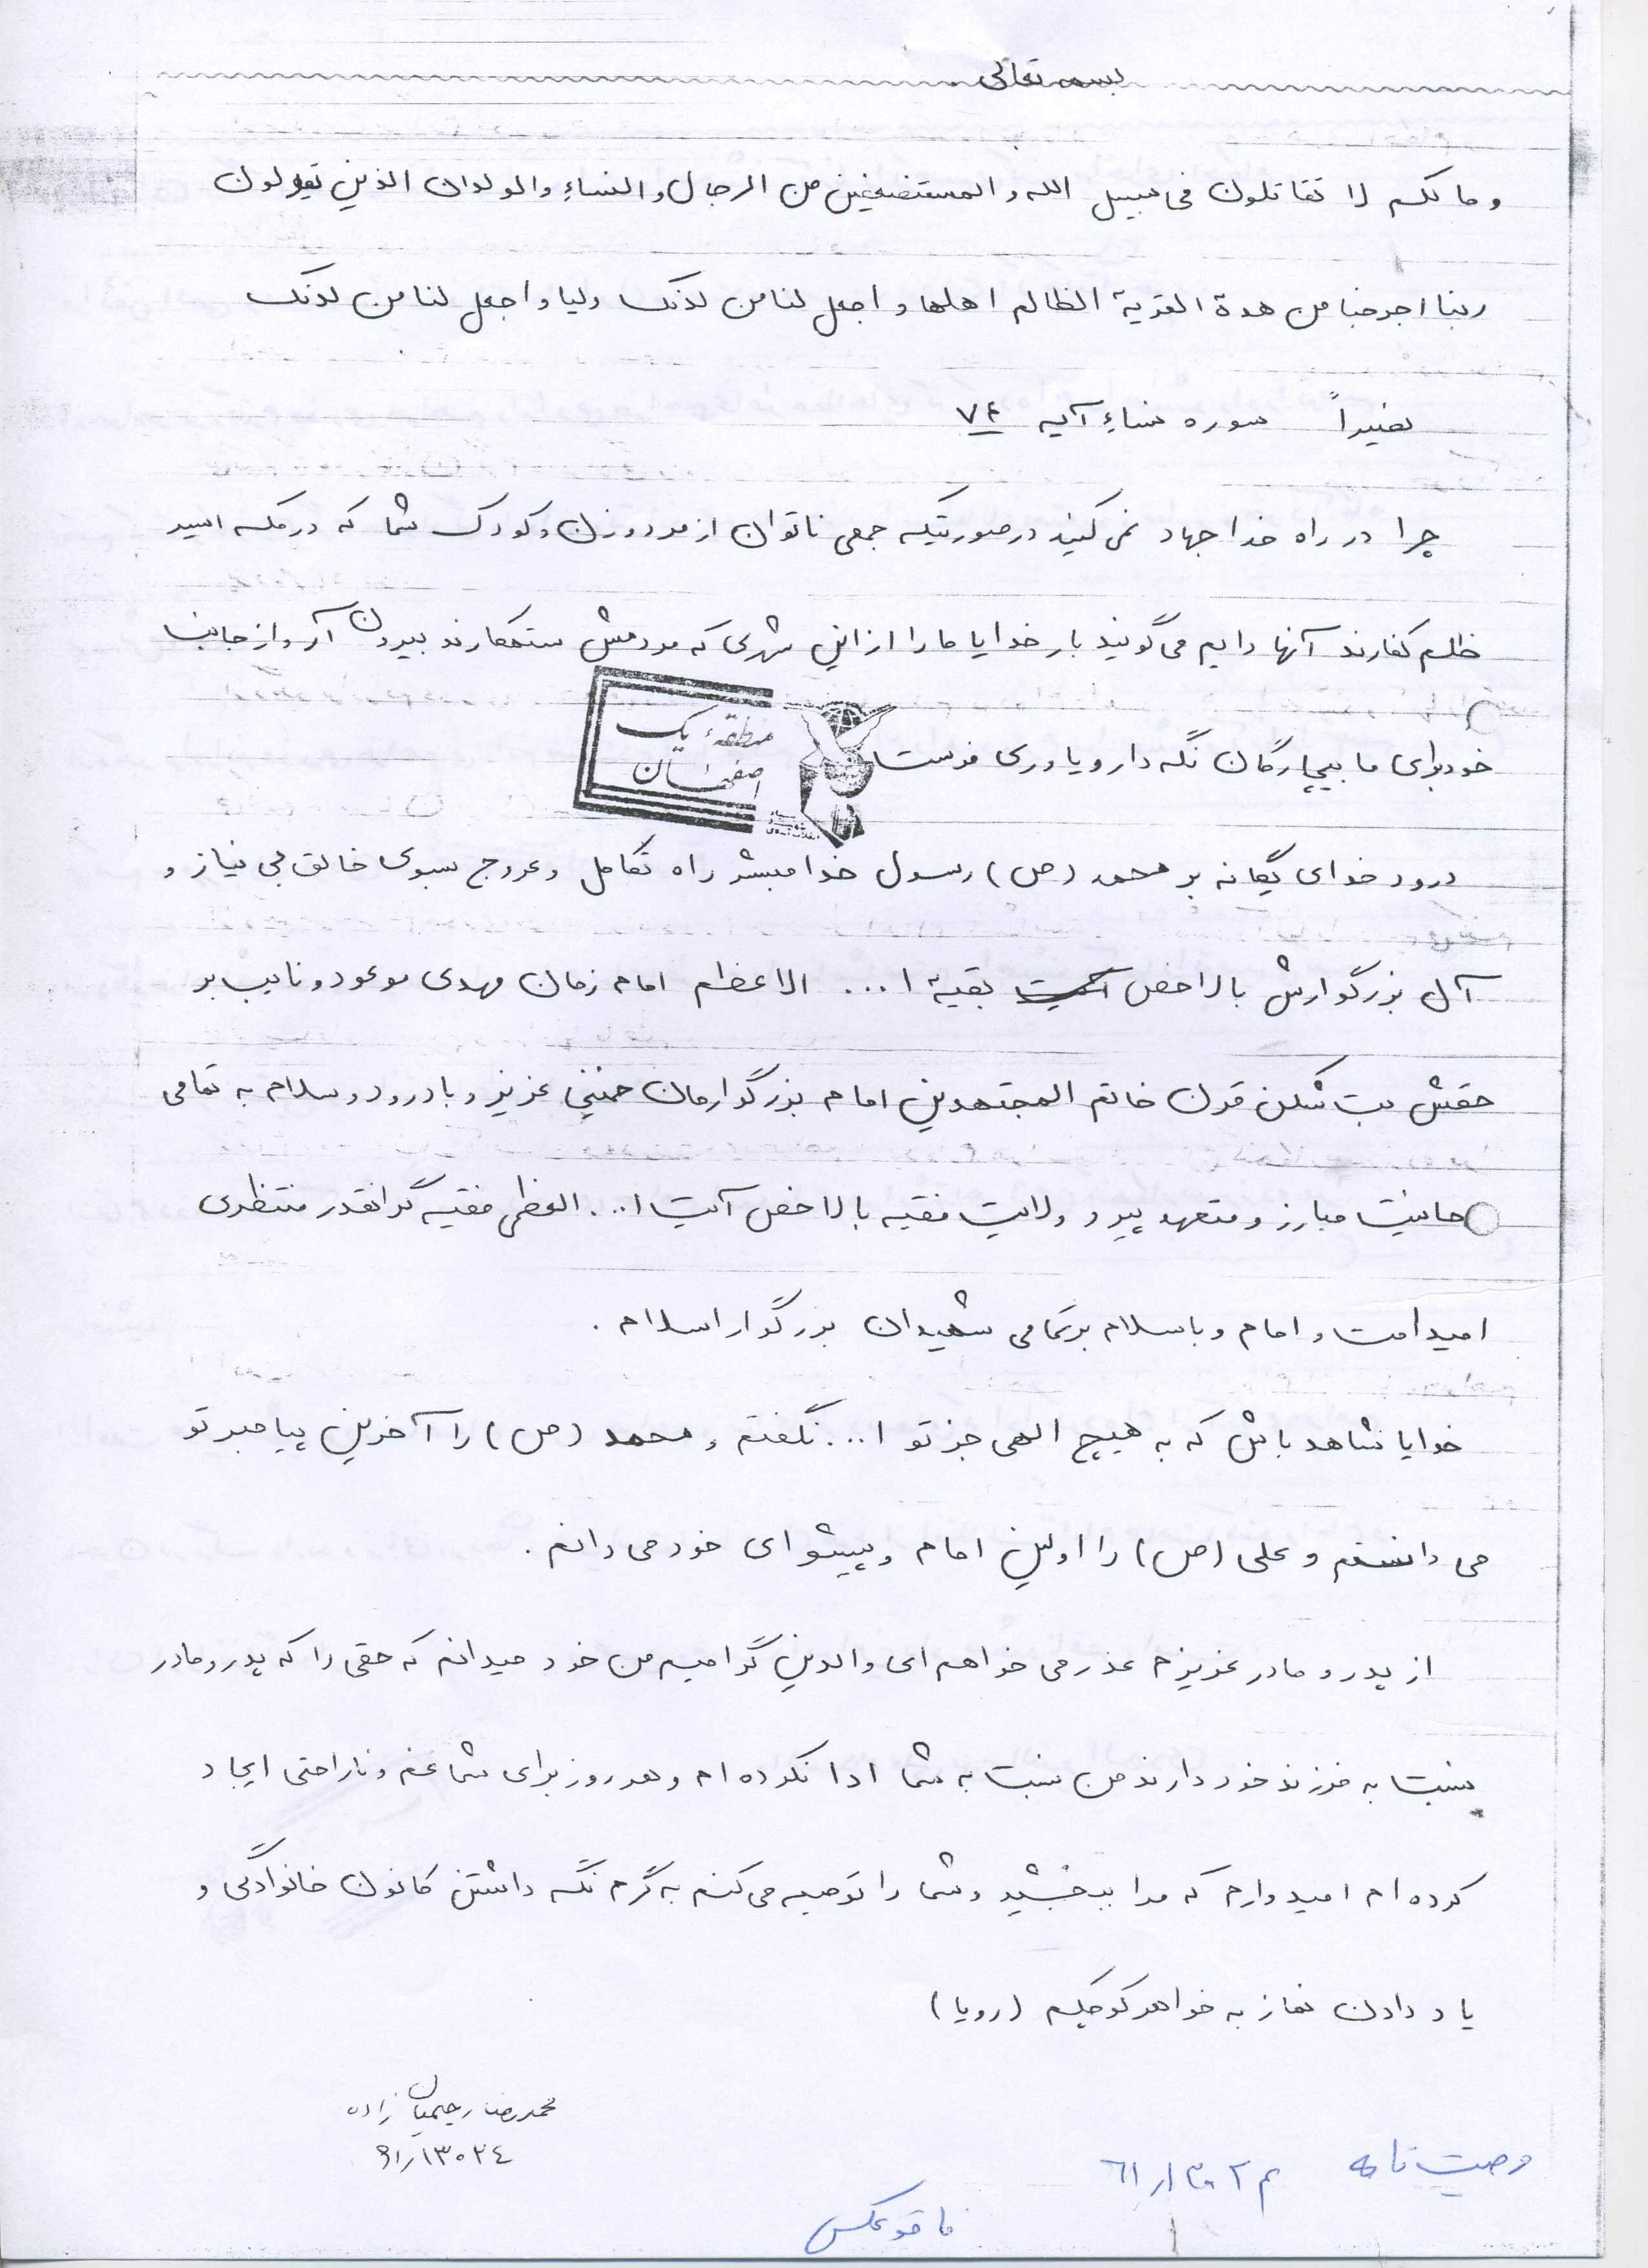 بسمه تعالی
و ما لکم لا تقاتلون فی سبیل الله و المستضعفین من الرجال و النساء و الولدان الذین یقولون
ربنا اجرجنا من هدة القریة الظالم اهلها و اجعل لنا من لدنک ولیا و اجعل لنا من لدنک
نصیراً سوره نساء آیه ۷۴
چرا در راه خدا جهاد نمی کنید در صورتیکه جمعی ناتوان از مرد و زن و کودک شما که در مکه اسیر
ظلم کفارند آنها دایم می گویند بار خدایا ما را از این شهری که مردمش ستمکارند بیرون آر و از جانب
خود برای ما بیچارگان نگه دار و یاوری فرست
منطقه یک
اصفهان
درود خدای یگانه بر محمد (ص) رسول خدا مبشر راه تکامل و عروج بسوی خالق بی نیاز و
آل بزرگوارش بالاخص بقیة ا... الاعظم امام زمان مهدی موعود و نایب بر
حقش بت شکن قرن خاتم المجتهدین امام بزرگوارمان خمینی عزیز و با درود و سلام به تمامی
حانیت مبارز و متعهد پیرو ولایت فقیه بالاخص آیت ا... العظمی فقیه گرانقدر منتظری
امید امت و امام و با سلام بر تمامی شهیدان بزرگوار اسلام .
خدایا شاهد باش که به هیچ الهی جز تو ا... نگفتم و محمد (ص) را آخرین پیامبر تو
می دانستم و علی (ص) را اولین امام و پیشوای خود می دانم .
از پدر و مادر عزیزم عذر می خواهم ای والدین گرامیم من خود میدانم که حقی را که پدر و مادر
نسبت به فرزند خود دارند من نسبت به شما ادا نکرده ام و هر روز برای شما غم و ناراحتی ایجاد
کرده ام امیدوارم که مرا ببخشید و شما را توصیه می کنم به گرم نگه داشتن کانون خانوادگی و
یاد دادن نماز به خواهر کوچکم (رویا)
محمدرضا رحیمیان زاده
وصیت نامه
فاقد عکس